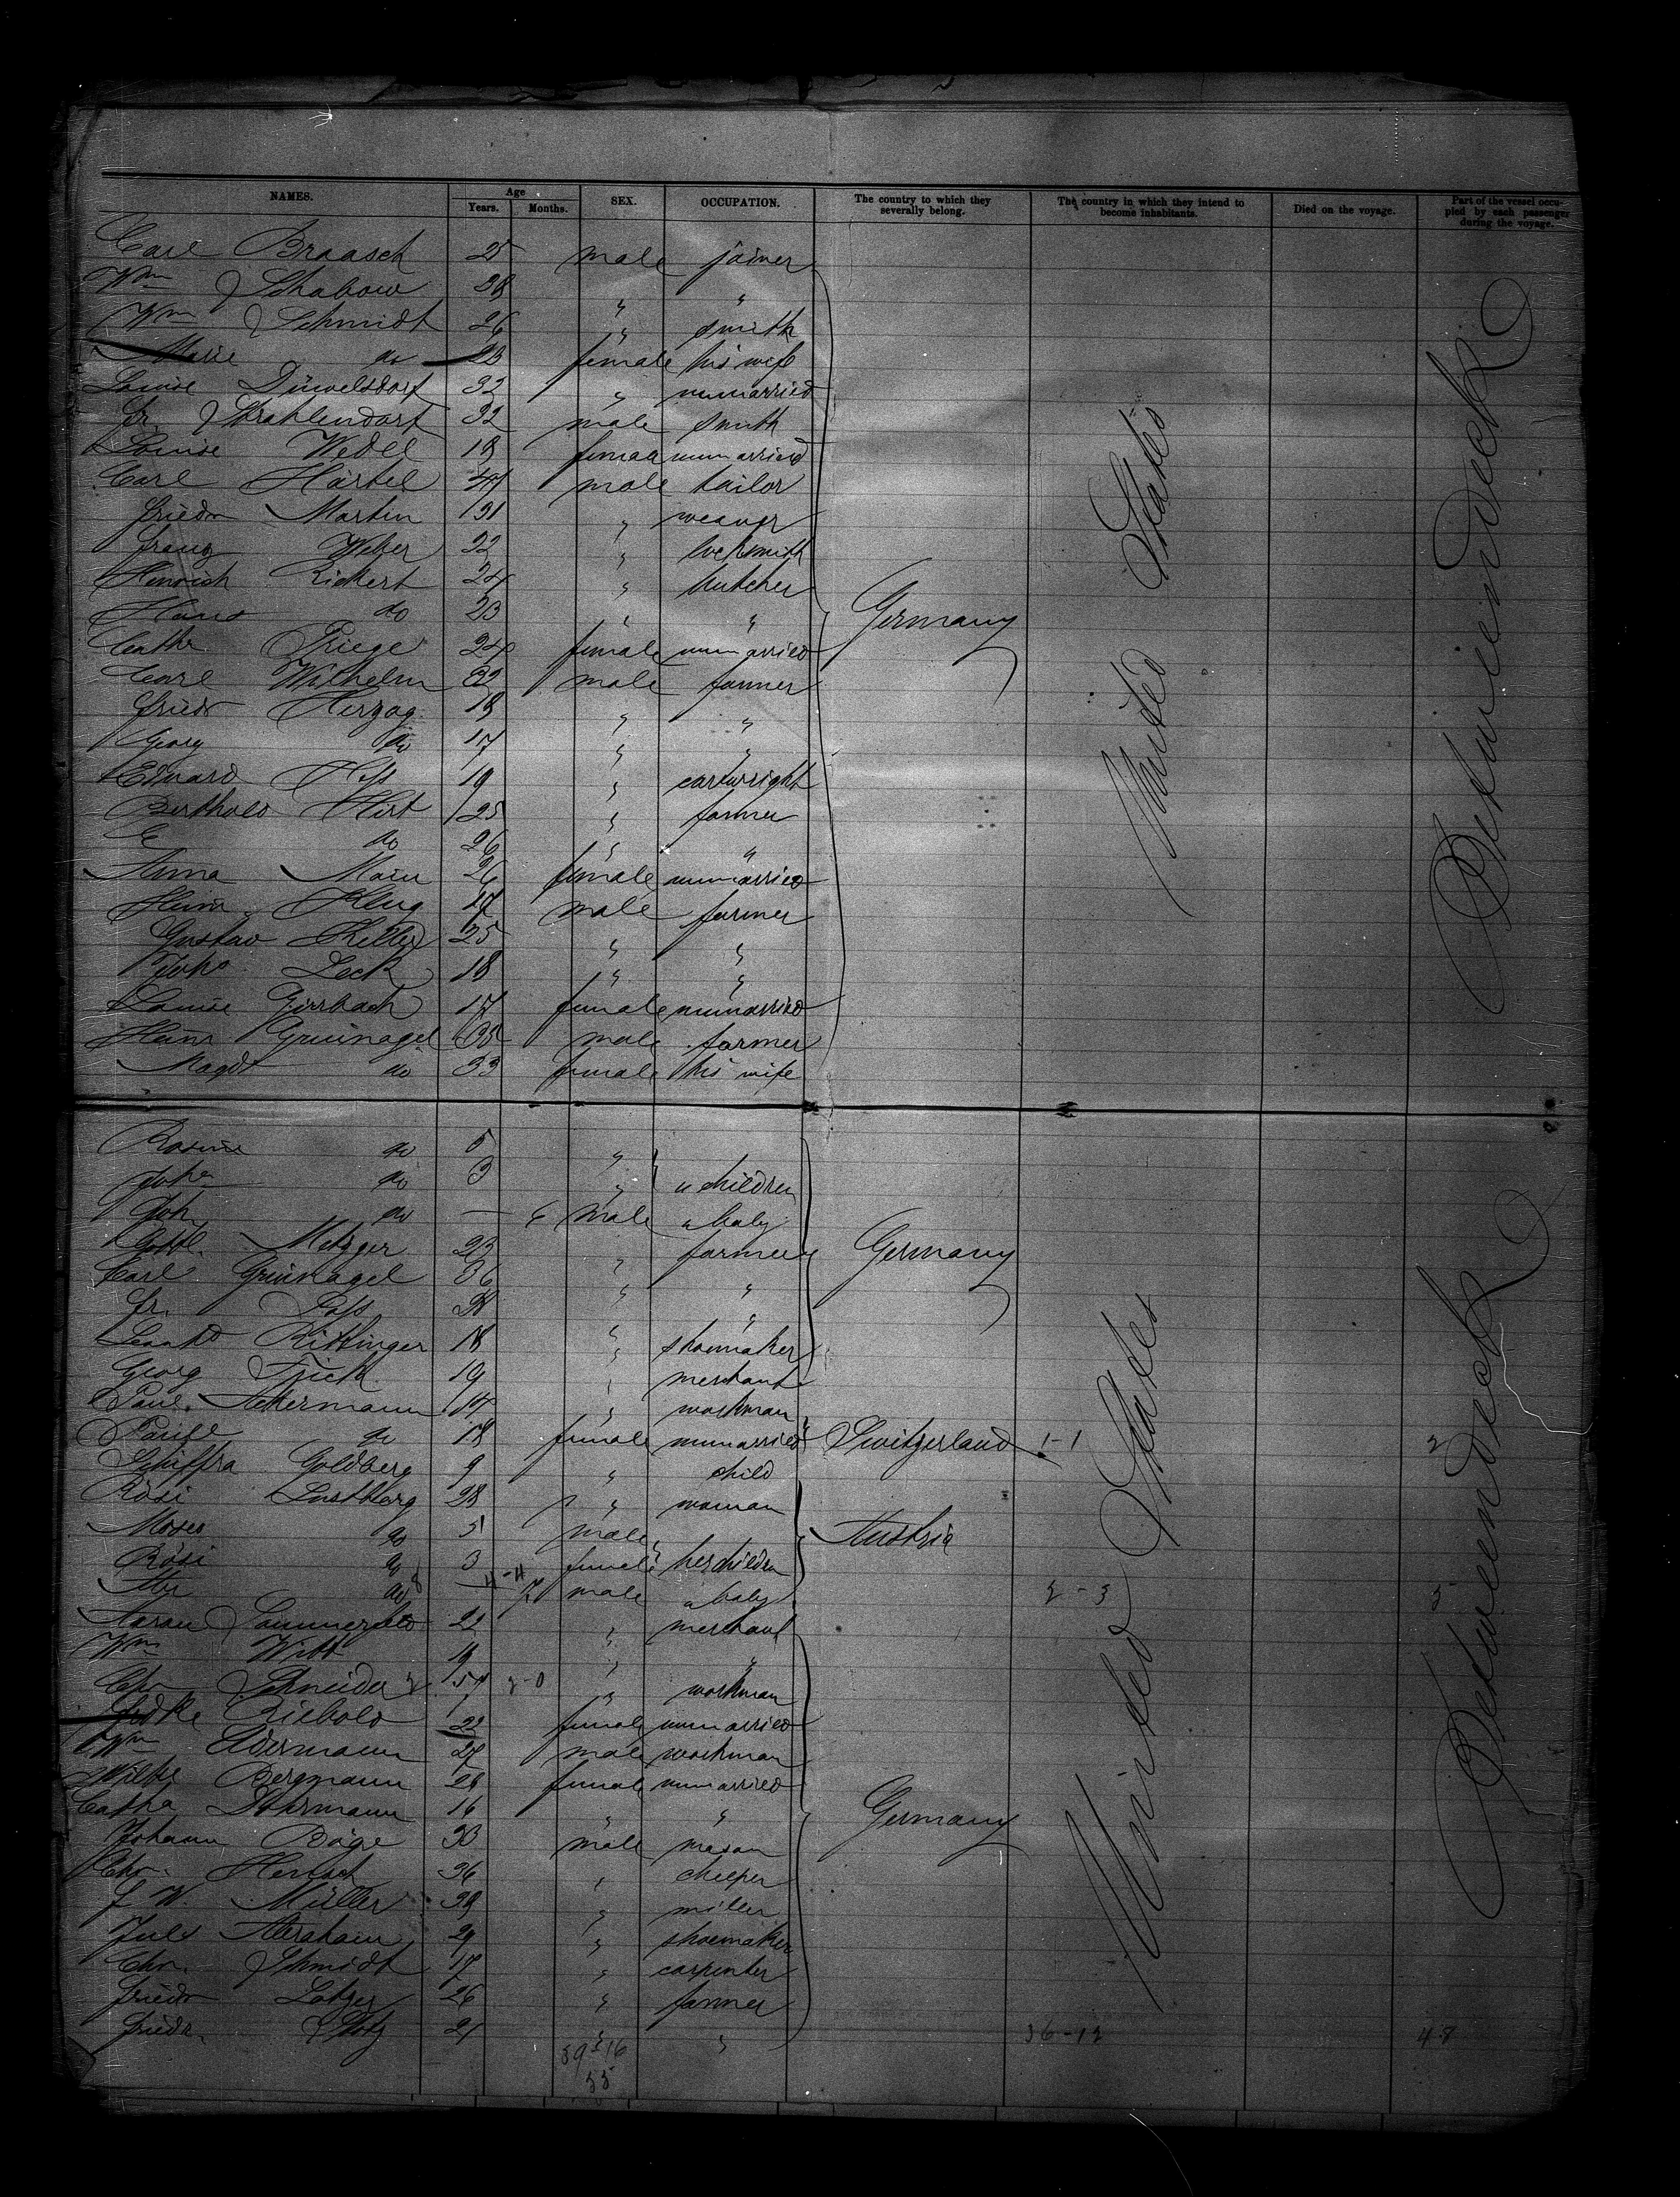 NAMES. Age Years. Months. SEX. OCCUPATION. The country to which they severally belong. The country in which they intend to become inhabitants. Died on the voyage. Part of the vessel occupied by each passenger during the voyage.
Carl Braasch 25 male joiner
Wm Schabow 38 " "
Wm Schmidt 26 " smith
Marie do 23 female his wife
Louise Düwelsdorf 32 " unmarried
Fr. Strahlendorf 32 male smith
Louise Wedel 18 unmarried
Carl Härtel male tailor
Friedr Martin 31 " weaver
Franz Weber 32 " locksmith
Heinrich Rickert 24 " butcher
Hans do 23 " "
Cathe Priege 24 female unmarried
Carl Wilhelm 32 male farmer
Friedr Herzog 18 " "
Georg do 17 " "
Eduard Hess 19 " cartwright
Berthold Hirt 25 " farmer
E do 26 " "
Anna 26 female unmarried
Heinr. Klug 27 male farmer
Gustav Keller 25 " "
Johs Leck 18 " "
Louise Girrbach 17 female unmarried
Heinr Grünagel 35 male farmer
Magd do 33 female his wife
Germany
United States
Between deck
Rosine do 5 "
Joha do 3 " " children
Joh do — 6 male " baby
Gottl. Metzger 23 " farmer
Carl Grünagel 36 " "
Fr. " "
Leonhd Rittinger 18 " shoemaker
Georg Frick 19 " merchant
Paul Ackermann " workman
do 18 female unmarried Switzerland 1-1 2
Schiffra Goldberg 9 " child
Rosi 28 " woman
Moses do 5 male
Rosi do 3 female her children
do male " baby 2-3 5
Aaron Sommerfeld 22 " merchant
Wm Witt 19 " "
Chr Schneider 54 " workman
Riebold 22 female unmarried
Wm Adermann 27 male workman
Bergmann 26 female unmarried
Catha Dohrmann 16 " "
Johann Böge 33 male mason
Chr. 36 "
F W. Müller 39 " miller
Juls Abraham 29 " shoemaker
Chr. Schmidt 17 " carpenter
Friedr Lotzer 26 " farmer
Friedr. 21 " "
Germany
Austria
Germany
United States
Between deck
36-12 48
39 16
55